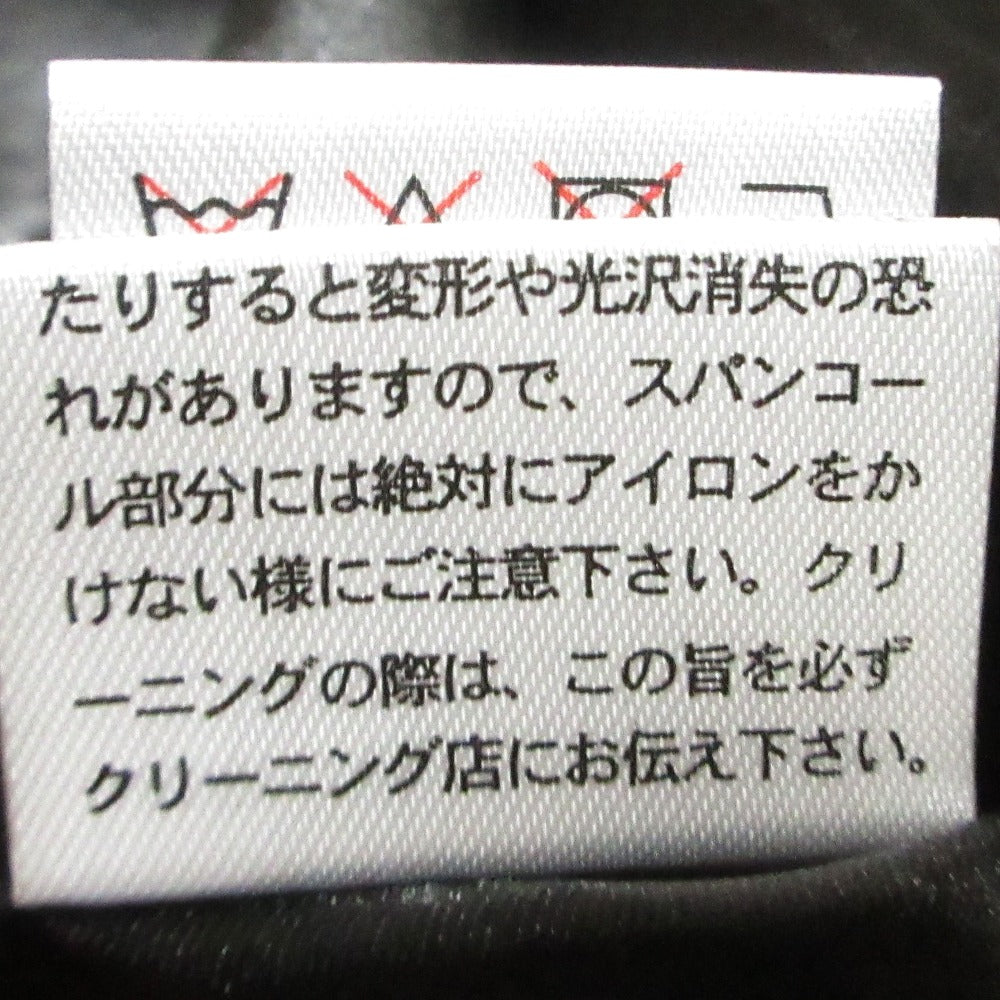 たりすると変形や光沢消失の恐
れがありますので、スパンコー
ル部分には絶対にアイロンをか
けない様にご注意下さい。クリ
ーニングの際は、この旨を必ず
クリーニング店にお伝え下さい。